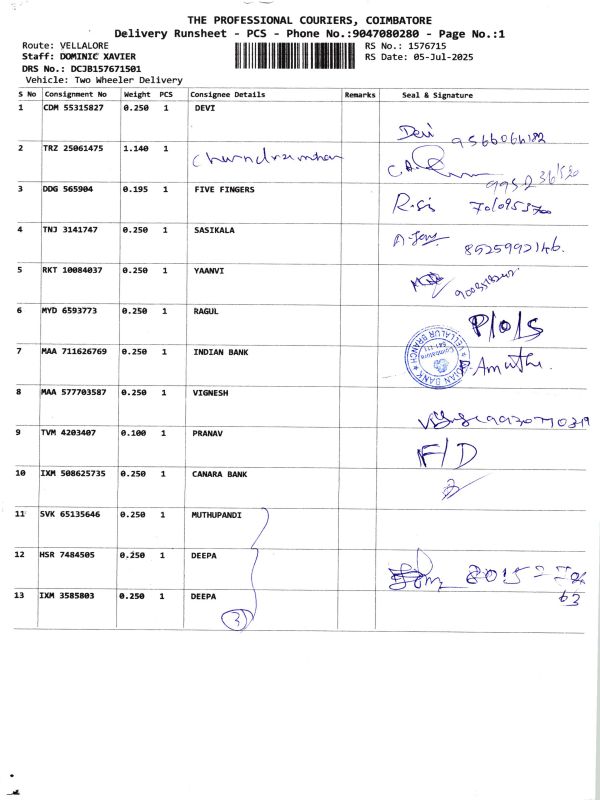 THE PROFESSIONAL COURIERS, COIMBATORE
Delivery Runsheet - PCS - Phone No.:9047080280 - Page No.:1
Route: VELLALORE
RS No.: 1576715
Staff: DOMINIC XAVIER
RS Date: 05-Jul-2025
DRS No.: DCJB157671501
Vehicle: Two Wheeler Delivery
S No Consignment No Weight PCS Consignee Details Remarks Seal & Signature
1 CDM 55315827 0.250 1 DEVI
Devi
2 TRZ 25061475 1.140 1
3 DDG 565904 0.195 1 FIVE FINGERS
4 TNJ 3141747 0.250 1 SASIKALA
8525992146.
5 RKT 10084037 0.250 1 YAANVI
6 MYD 6593773 0.250 1 RAGUL
P/o/s
7 MAA 711626769 0.250 1 INDIAN BANK
INDIAN BANK VELLALUR BRANCH Coimbatore 641 111
P. Amutha.
8 MAA 577703587 0.250 1 VIGNESH
9 TVM 4203407 0.100 1 PRANAV
F/D
10 IXM 508625735 0.250 1 CANARA BANK
11 SVK 65135646 0.250 1 MUTHUPANDI
12 HSR 7484505 0.250 1 DEEPA
13 IXM 3585803 0.250 1 DEEPA
63
3